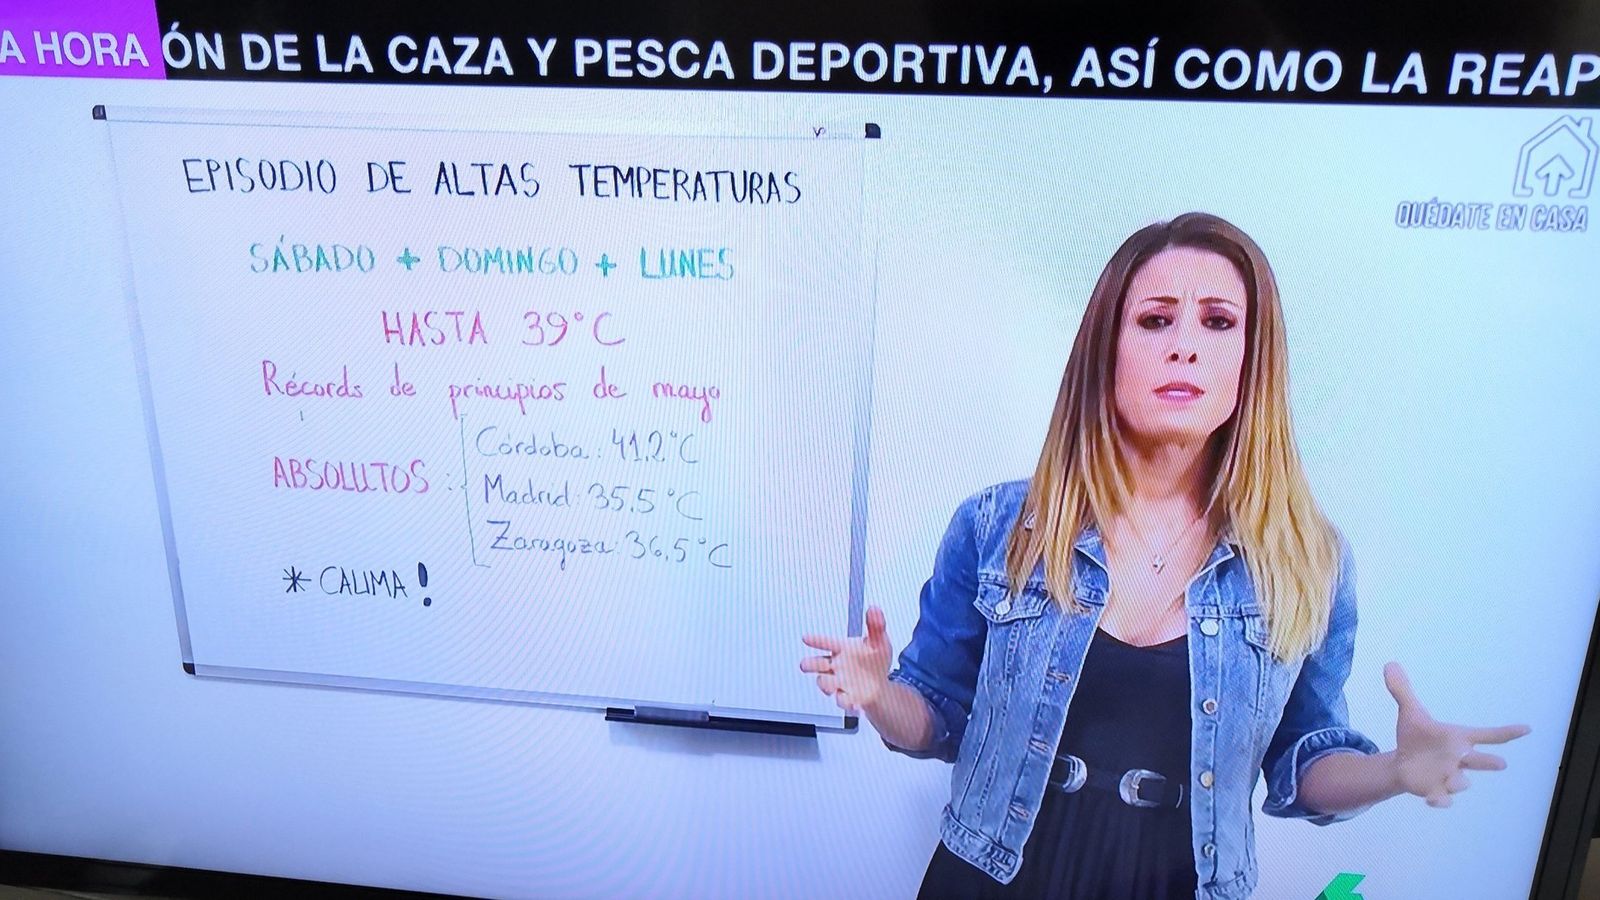 A HORA
ÓN DE LA CAZA Y PESCA DEPORTIVA, ASÍ COMO LA REAP
QUÉDATE EN CASA
EPISODIO DE ALTAS TEMPERATURAS
SÁBADO + DOMINGO + LUNES
HASTA 39°C
Récords de principios de mayo
ABSOLUTOS:
Córdoba: 41,2°C
Madrid: 35,5°C
Zaragoza: 36,5°C
* CALIMA!